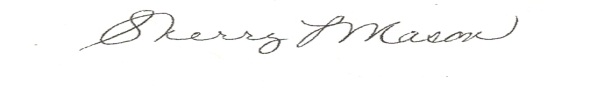 Sherry L Mason